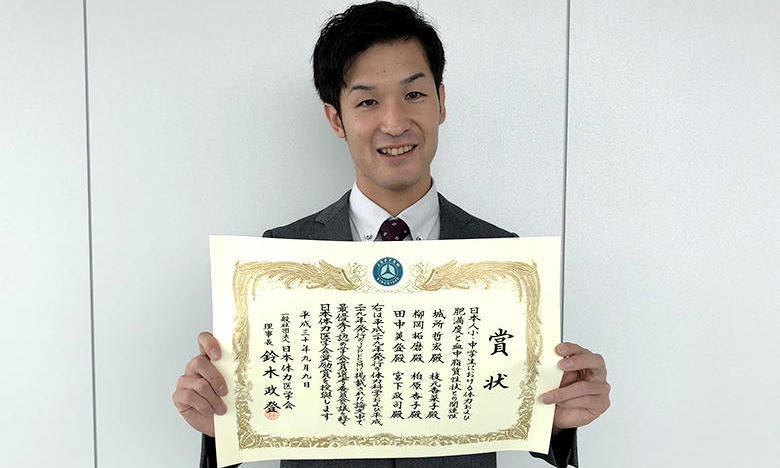 賞状
日本人小・中学生における体力および
肥満度と血中脂質性状との関連性
城所哲宏殿 枝元香菜子殿
柳岡拓磨殿 柏原杏子殿
田中美登殿 宮下政司殿
右は平成二十九年発行体力科学および平成
二十九年発行JPFSMに掲載された論文中で
最優秀と認め学会賞選考委員会の議を経て
日本体力医学会奨励賞を授与します
平成三十年九月九日
一般社団法人日本体力医学会
理事長 鈴木政登